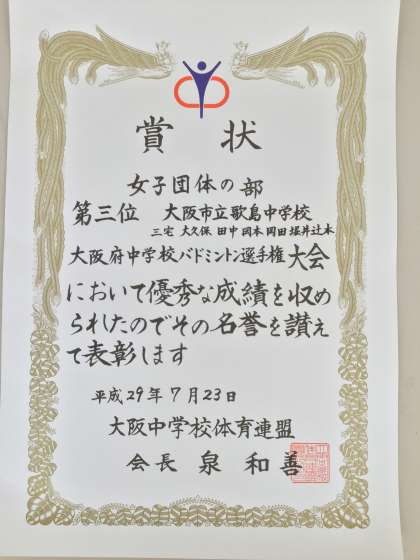 賞状
女子団体の部
第三位 大阪市立歌島中学校
三宅 大久保 田中 岡本 岡田 堀井 辻本
大阪府中学校バドミントン選手権大会
において優秀な成績を収め
られたのでその名誉を讃え
て表彰します
平成29年7月23日
大阪中学校体育連盟
会長 泉 和善